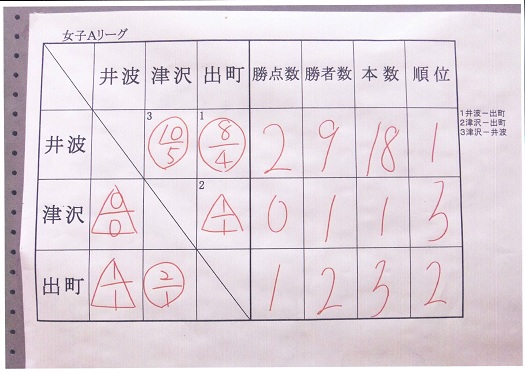 女子Aリーグ
井波 津沢 出町 勝点数 勝者数 本数 順位
井波 3 10/5 1 8/4 2 9 18 1
津沢 0/0 2 1/1 0 1 1 3
出町 1/1 2/1 1 2 3 2
1井波－出町
2津沢－出町
3津沢－井波